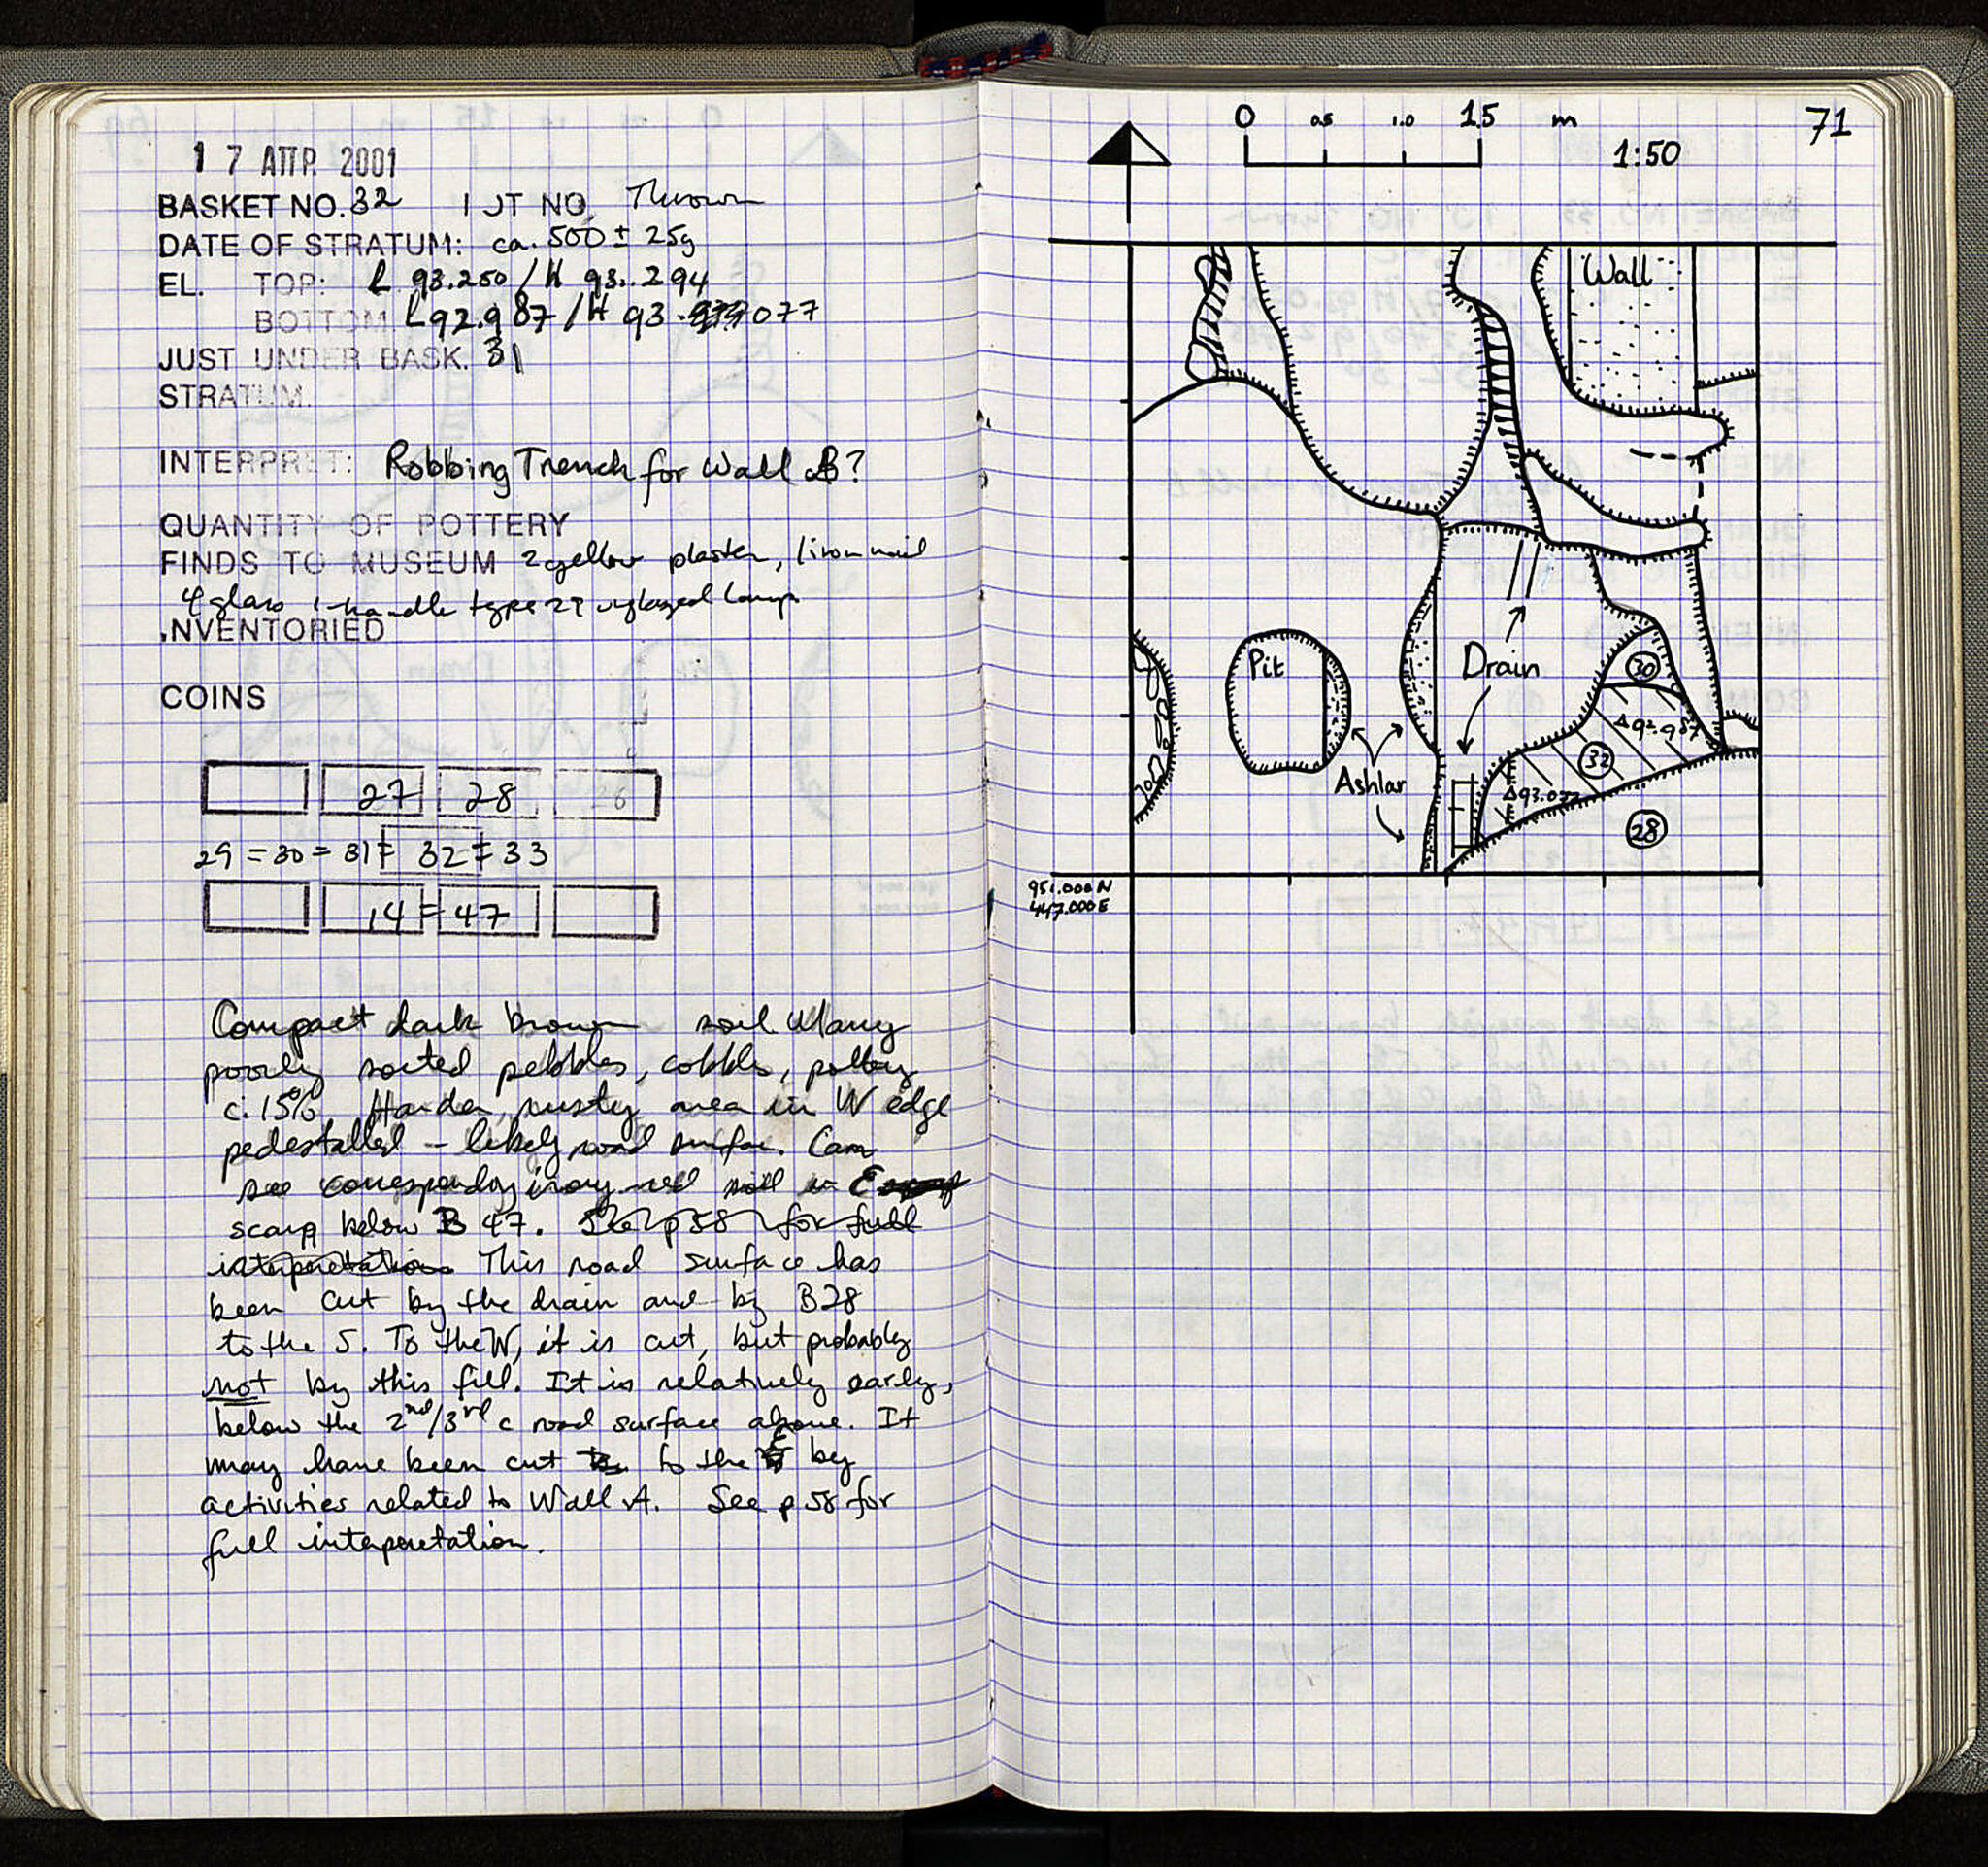 17 ΑΠΡ. 2001
BASKET NO. 32 LOT NO. Thrown
DATE OF STRATUM: ca. 500 ± 25y
EL. TOP: L 93.250 / H 93.294
BOTTOM L92.987 / H 93.077
JUST UNDER BASK. 31
STRATUM.
INTERPRET: Robbing Trench for Wall B?
QUANTITY OF POTTERY
FINDS TO MUSEUM 2 yellow plaster, 1 iron nail
4 glass 1 handle type 27 unglazed lamp
INVENTORIED
COINS
27 28 26
29 = 30 = 31 = 32 = 33
14 = 47
Compact dark brown soil. Many
poorly sorted pebbles, cobbles, pottery
c. 15%. Harder, rusty area in W edge
pedestalled – likely road surface. Can
see corresponding irony red soil in E
scarp below B 47. See p 58 for full
interpretation This road surface has
been cut by the drain and by B28
to the S. To the W, it is cut, but probably
not by this fill. It is relatively early,
below the 2nd/3rd c road surface above. It
may have been cut to the E by
activities related to Wall A. See p 58 for
full interpretation.
71
0 0.5 1.0 1.5 m
1:50
Wall
Pit
Drain
30
Δ92.987
32
Ashlar
Δ93.077
28
951.000 N
447.000 E